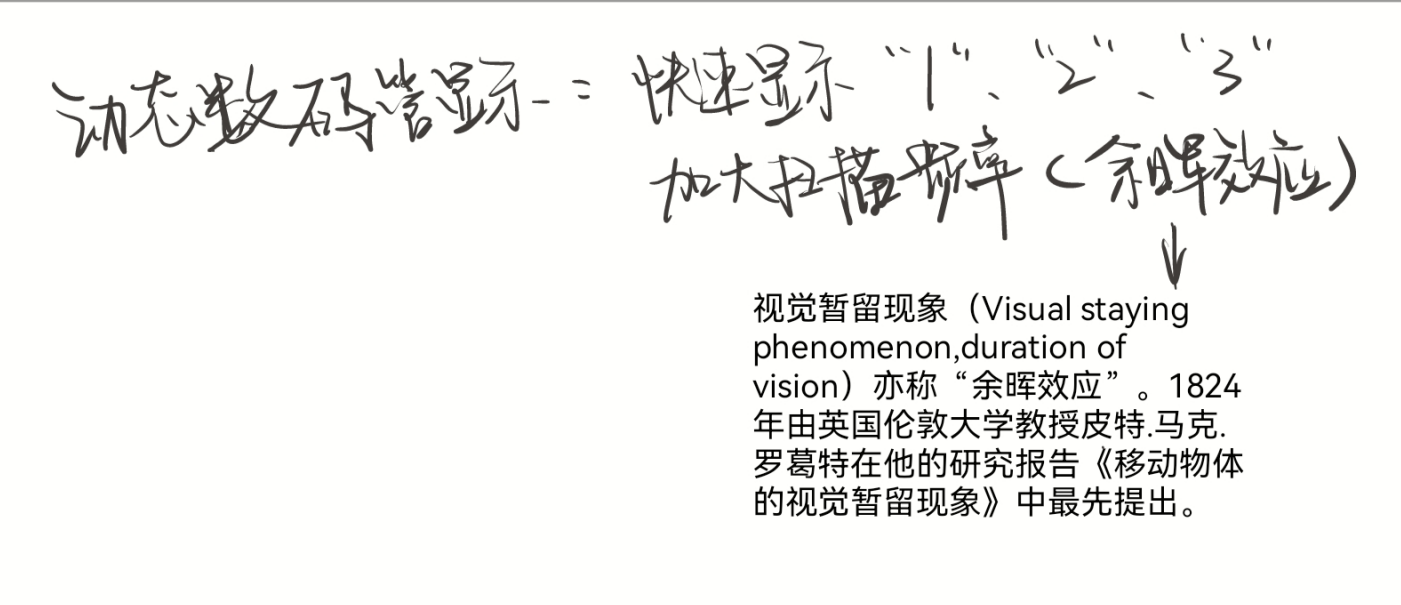 动态数码管显示 = 快速显示 “1”、“2”、“3”
加大扫描频率(余晖效应)
↓
视觉暂留现象（Visual staying
phenomenon,duration of
vision）亦称“余晖效应”。1824
年由英国伦敦大学教授皮特.马克.
罗葛特在他的研究报告《移动物体
的视觉暂留现象》中最先提出。